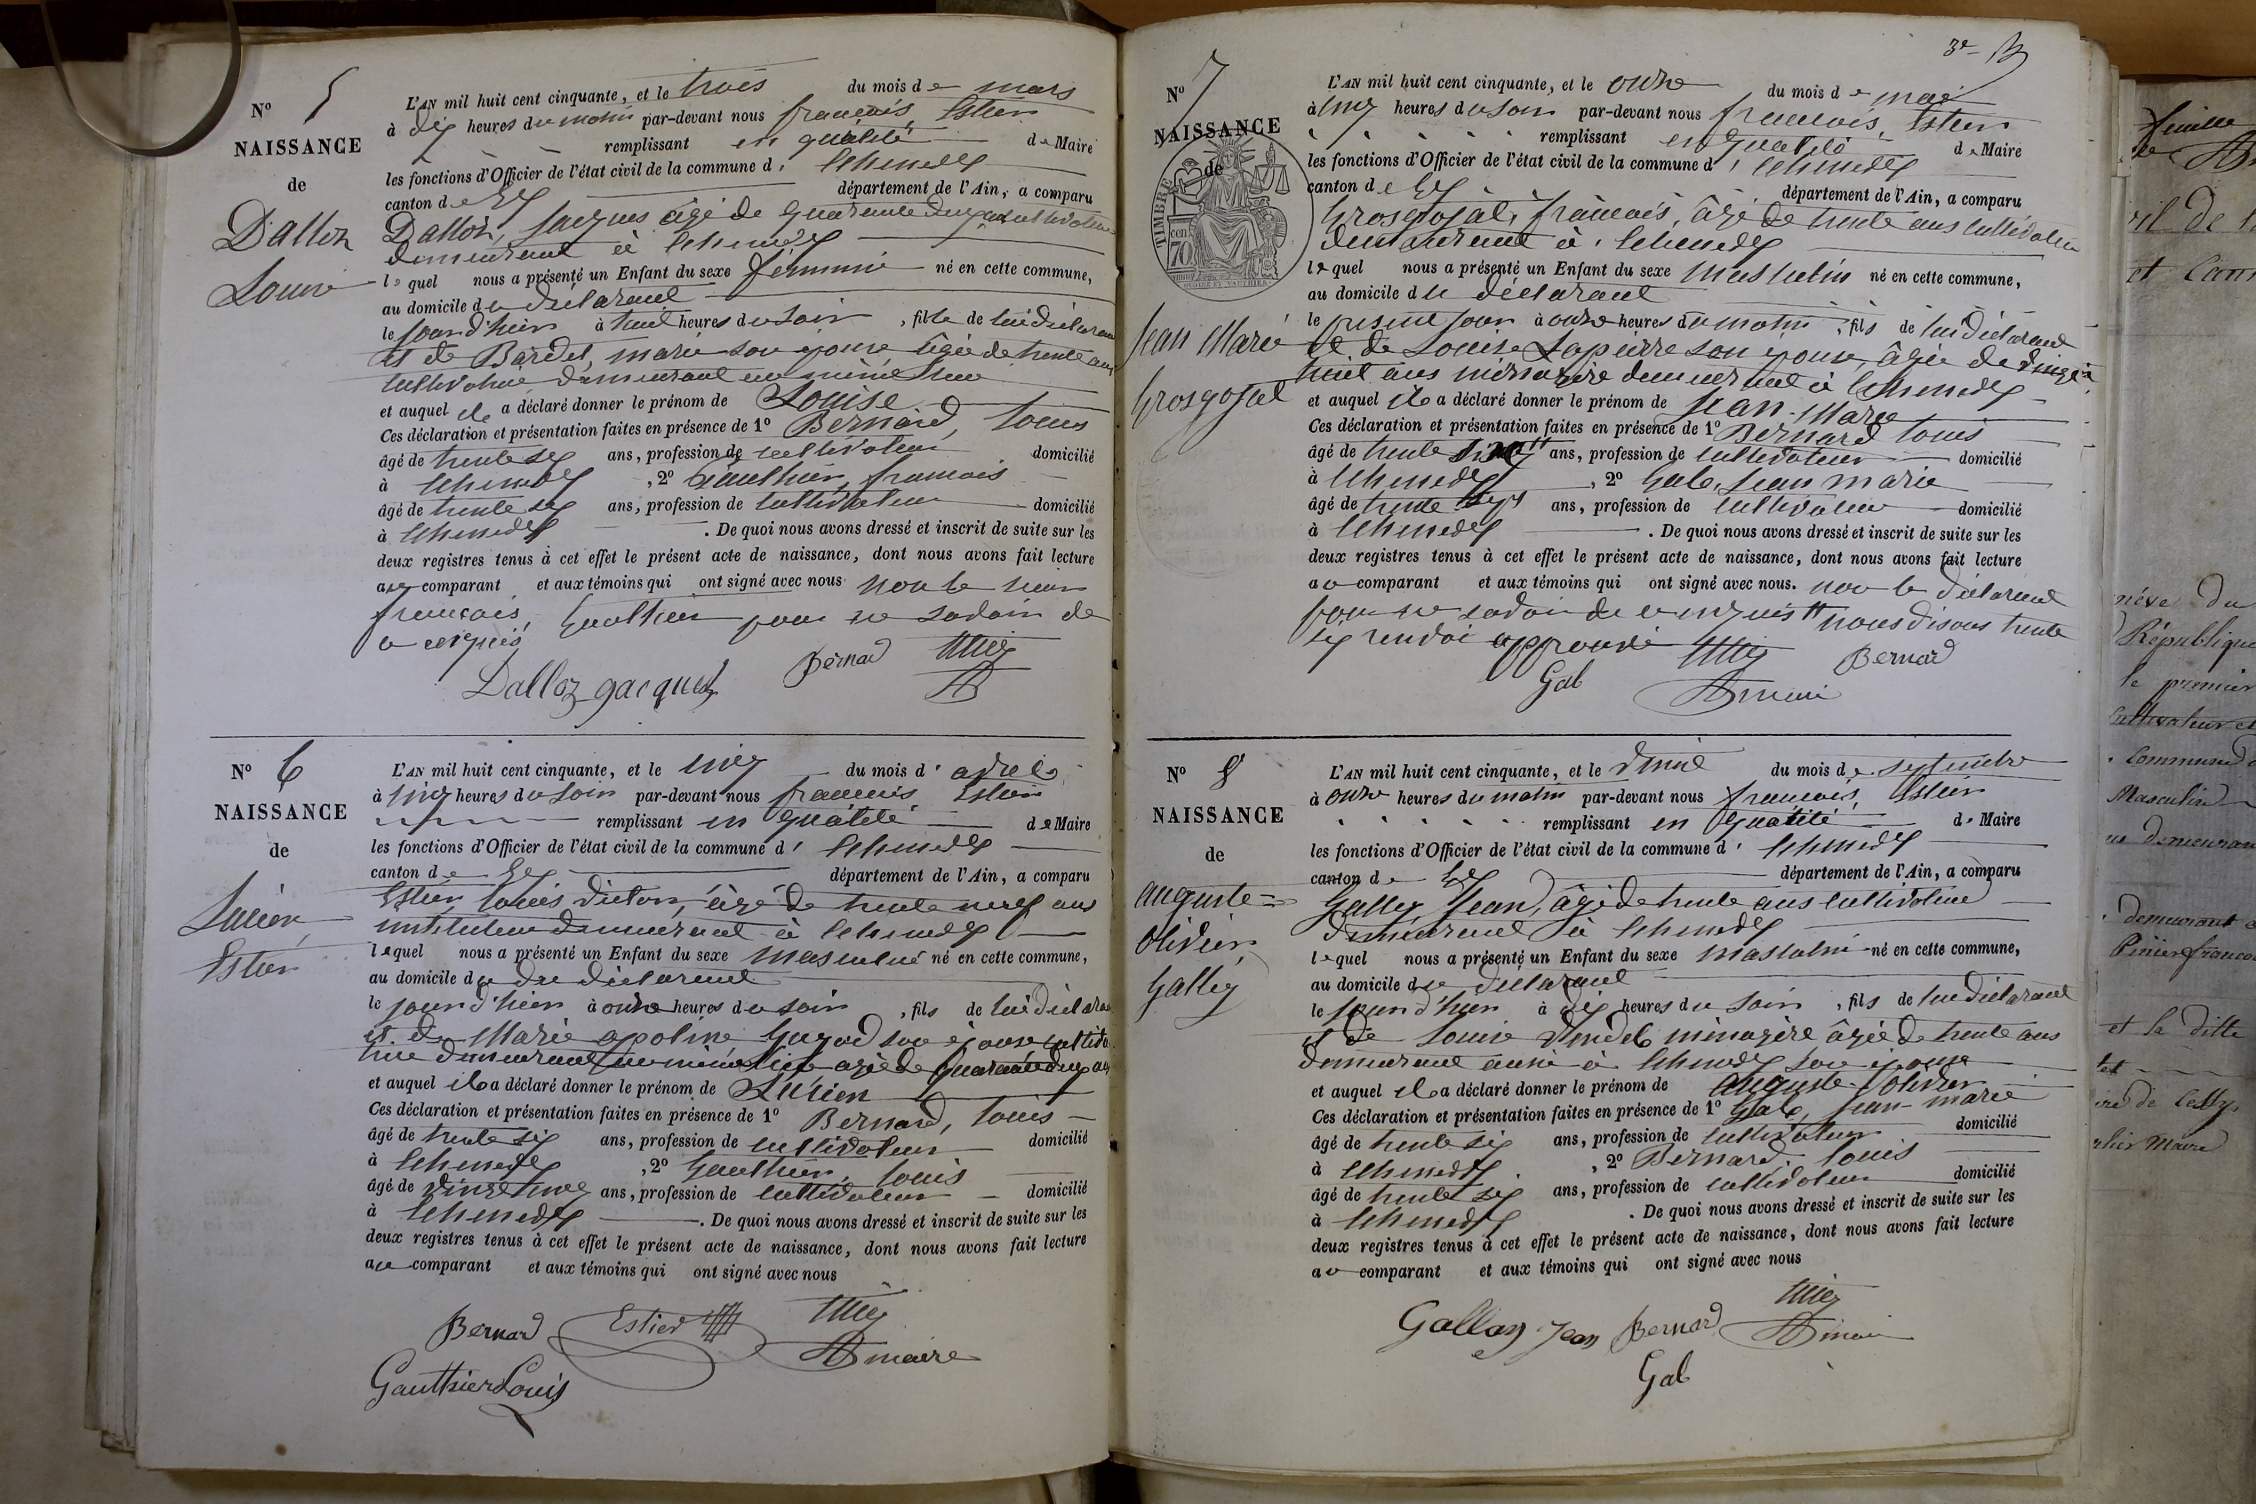 N° 5
NAISSANCE
de
Dalloz
Louise
L'AN mil huit cent cinquante, et le trois du mois de mars
à dix heures du matin par-devant nous françois, Estier
remplissant en qualité de Maire
les fonctions d'Officier de l'état civil de la commune d'Echenevex
canton de Gex département de l'Ain, a comparu
Dalloz, Jacques âgé de quarante deux ans cultivateur
demeurant à Echenevex
lequel nous a présenté un Enfant du sexe féminin né en cette commune,
au domicile du déclarant
le jour d'hier à huit heures du soir, fille de lui déclarant
et de Bardet, marie son épouse âgée de trente ans
cultivatrice demeurant au même lieu
et auquel il a déclaré donner le prénom de Louise
Ces déclaration et présentation faites en présence de 1° Bernard, Louis
âgé de trente six ans, profession de cultivateur domicilié
à Echenevex, 2° Gauthier, francois
âgé de trente six ans, profession de cultivateur domicilié
à Echenevex. De quoi nous avons dressé et inscrit de suite sur les
deux registres tenus à cet effet le présent acte de naissance, dont nous avons fait lecture
au comparant et aux témoins qui ont signé avec nous non le
françois, Gauthier pour ne savoir de
ce requis
Bernard
Dalloz Jacques
N° 6
NAISSANCE
de
Lucien
Estier
L'AN mil huit cent cinquante, et le cinq du mois d'avril
à cinq heures du soir par-devant nous françois Estier
remplissant en qualité de Maire
les fonctions d'Officier de l'état civil de la commune d'Echenevex
canton de Gex département de l'Ain, a comparu
Estier louis victor, âgé de trente neuf ans
instituteur demeurant à Echenevex
lequel nous a présenté un Enfant du sexe masculin né en cette commune,
au domicile du déclarant
le jour d'hier à onze heures du soir, fils de lui déclarant
et de Marie apoline son épouse
demeurant au même lieu âgée de quarante deux ans
et auquel il a déclaré donner le prénom de Lucien
Ces déclaration et présentation faites en présence de 1° Bernard, louis
âgé de trente six ans, profession de cultivateur domicilié
à Echenevex, 2° Gauthier, louis
âgé de vingt cinq ans, profession de cultivateur domicilié
à Echenevex. De quoi nous avons dressé et inscrit de suite sur les
deux registres tenus à cet effet le présent acte de naissance, dont nous avons fait lecture
au comparant et aux témoins qui ont signé avec nous
Bernard Estier
maire
Gauthier Louis
3e
N° 7
NAISSANCE
de
TIMBRE
cen 70
Jean Marie
Grosgojat
L'AN mil huit cent cinquante, et le onze du mois de mai
à cinq heures du soir par-devant nous francois, Estier
remplissant en qualité de Maire
les fonctions d'Officier de l'état civil de la commune d'Echenevex
canton de Gex département de l'Ain, a comparu
Grosgojat, françois, âgé de trente ans cultivateur
demeurant à Echenevex
lequel nous a présenté un Enfant du sexe masculin né en cette commune,
au domicile du déclarant
le présent jour à onze heures du matin, fils de lui déclarant
et de Louise Lapierre son épouse, âgée de vingt
huit ans ménagère demeurant à Echenevex
et auquel il a déclaré donner le prénom de Jean-Marie
Ces déclaration et présentation faites en présence de 1° Bernard louis
âgé de trente ans, profession de cultivateur domicilié
à Echenevex, 2° Gab, Jean marie
âgé de trente ans, profession de cultivateur domicilié
à Echenevex. De quoi nous avons dressé et inscrit de suite sur les
deux registres tenus à cet effet le présent acte de naissance, dont nous avons fait lecture
au comparant et aux témoins qui ont signé avec nous. non le déclarant
pour ne savoir de ce requis nous disons trente
six renvoi approuvé
Bernard
Gab maire
N° 8
NAISSANCE
de
auguste=
Olivier,
Galley
L'AN mil huit cent cinquante, et le du mois de septembre
à onze heures du matin par-devant nous francois, Estier
remplissant en qualité de Maire
les fonctions d'Officier de l'état civil de la commune d'Echenevex
canton de Gex département de l'Ain, a comparu
Galley, Jean, âgé de trente ans cultivateur
demeurant à Echenevex
lequel nous a présenté un Enfant du sexe masculin né en cette commune,
au domicile du déclarant
le jour d'hier à dix heures du soir, fils de lui déclarant
et de Louise ménagère âgée de trente ans
demeurant aussi à Echenevex son épouse
et auquel il a déclaré donner le prénom de auguste Olivier
Ces déclaration et présentation faites en présence de 1° Gab, Jean-marie
âgé de trente six ans, profession de cultivateur domicilié
à Echenevex, 2° Bernard, louis
âgé de trente six ans, profession de cultivateur domicilié
à Echenevex. De quoi nous avons dressé et inscrit de suite sur les
deux registres tenus à cet effet le présent acte de naissance, dont nous avons fait lecture
au comparant et aux témoins qui ont signé avec nous
Jean Bernard maire
Gab
République
le premier
cultivateur et
Commune
Masculin
demeurant
et la ditte